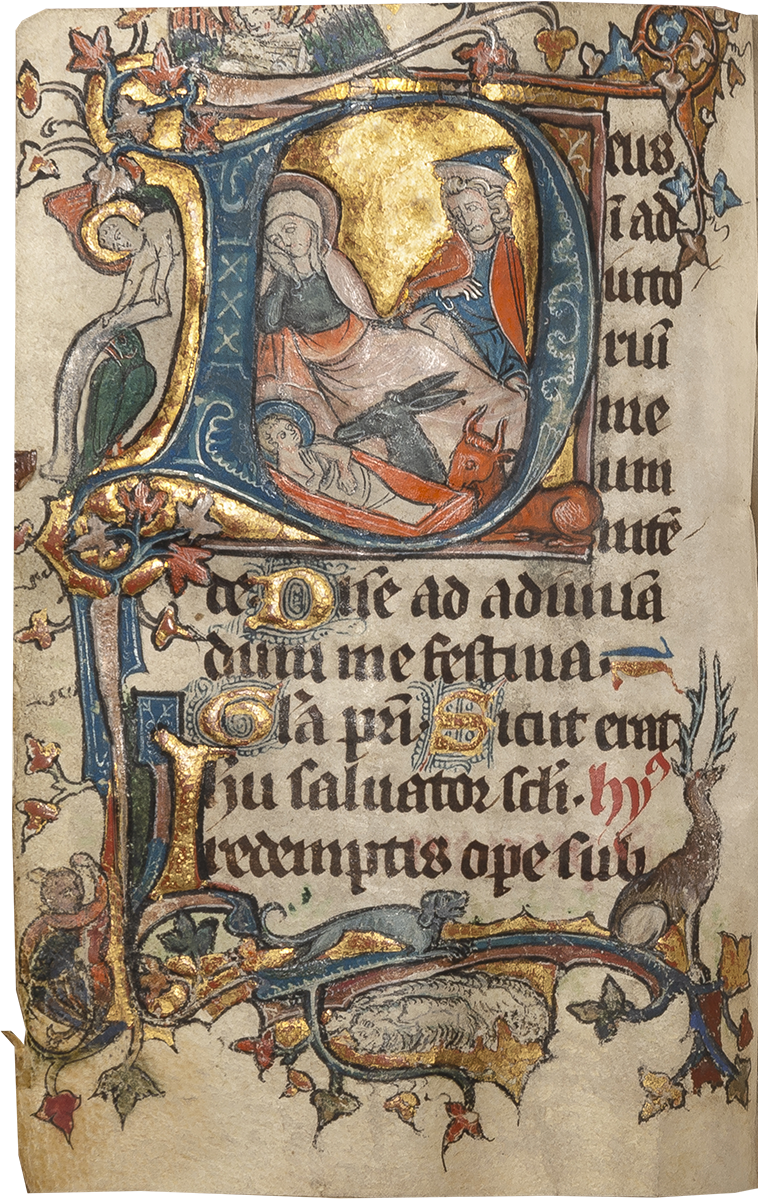 Deus
ī ad
iuto
riū
me
um
intē
de Dn̄e ad adiuuā
dum me festina.
Gl̄a pr̄i. Sicut erat
Ihu saluator scl̄i. hyꝰ
redemptis ope sub